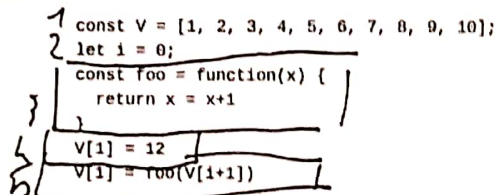 1 const V = [1, 2, 3, 4, 5, 6, 7, 8, 9, 10];
2 let i = 0;
const foo = function(x) {
3 return x = x+1
}
4 V[1] = 12
5 V[i] = foo(V[i+1])